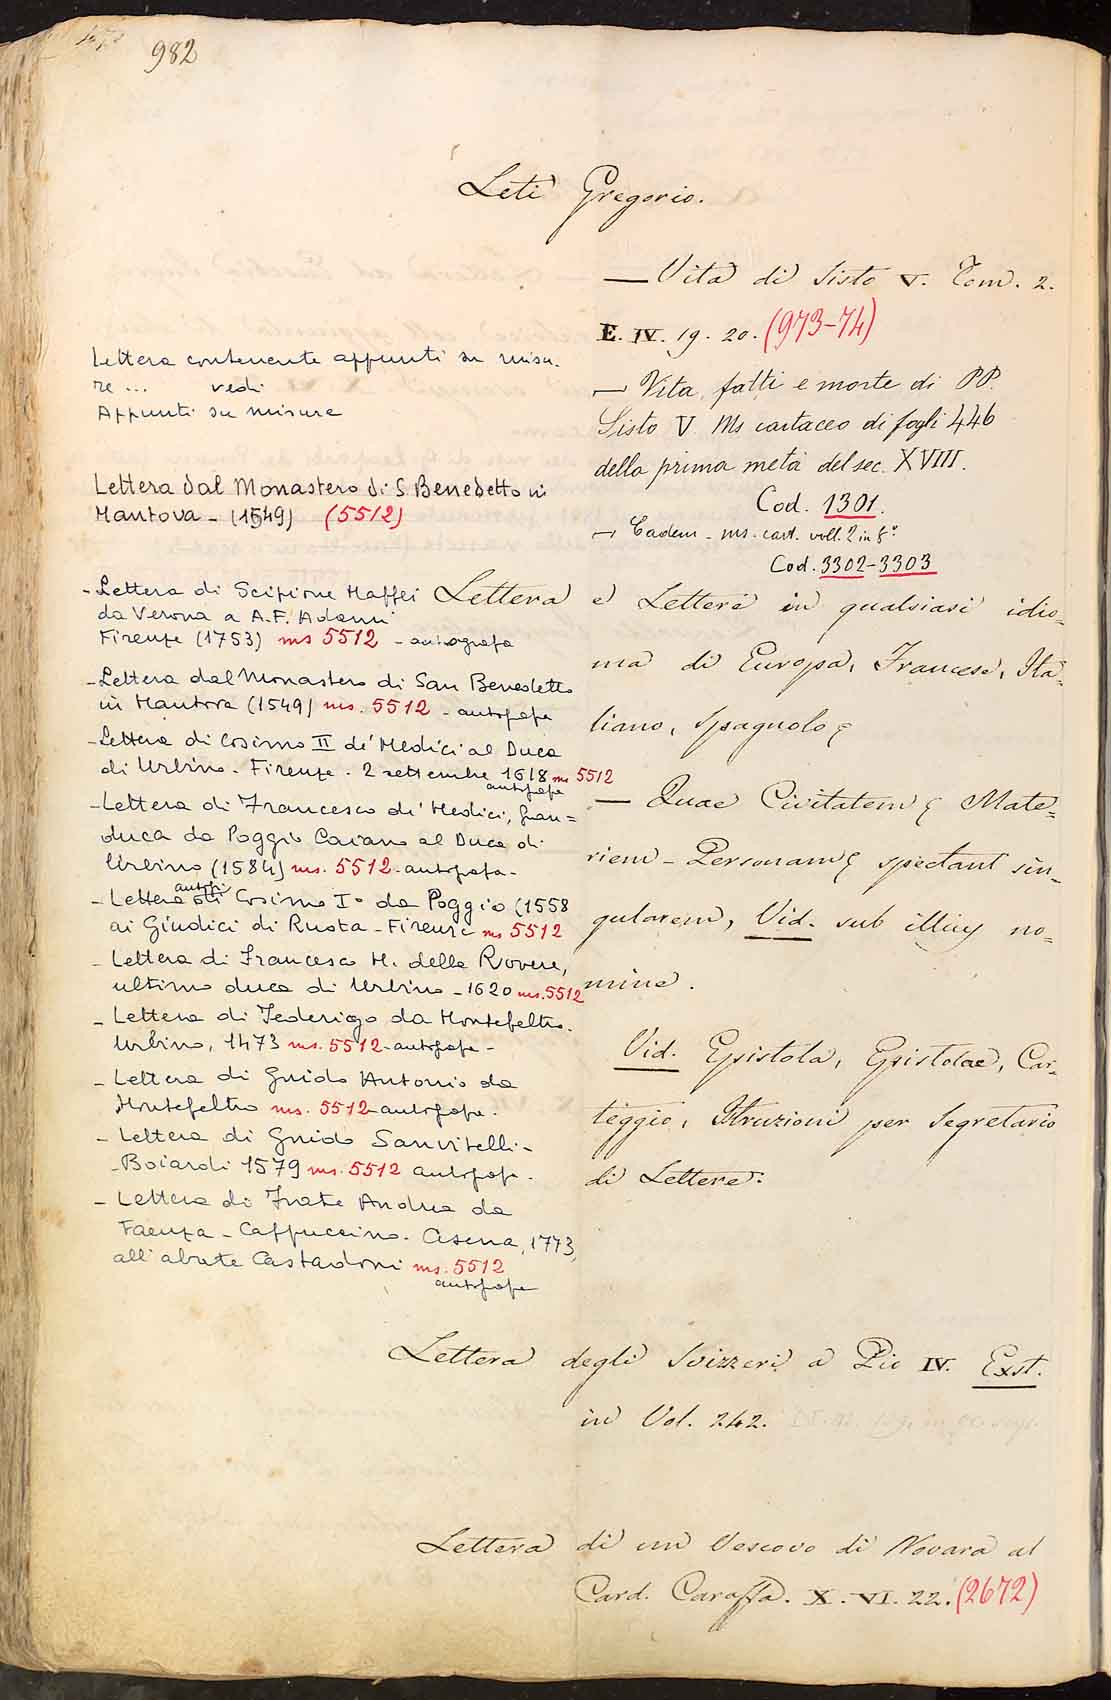 982
Leti Gregorio.
— Vita di Sisto V. Tom. 2.
E. IV. 19. 20. (973-74)
— Vita, fatti e morte di PP.
Sisto V Ms cartaceo di fogli 446
della prima metà del sec. XVIII.
Cod. 1301.
— Eadem - ms. cart. voll. 2 in f.º
Cod. 3302-3303
Lettera contenente appunti su misu-
re ... vedi
Appunti su misure
Lettera dal Monastero di S. Benedetto in
Mantova - (1549) (5512)
- Lettera di Scipione Maffei
da Verona a A. F. Adami
Firenze (1753) ms 5512 - autografa
- Lettera dal Monastero di San Benedetto
in Mantova (1549) ms. 5512 - autografa
- Lettera di Cosimo II de' Medici al Duca
di Urbino. Firenze. 2 settembre 1618 ms 5512
autografa
- Lettera di Francesco de' Medici, Gran=
duca da Poggio Caiano al Duca di
Urbino (1584) ms. 5512 - autografa -
- Lettera di Cosimo Iº da Poggio (1558
ai Giudici di Ruota - Firenze ms 5512
- Lettera di Francesco M. della Rovere,
ultimo duca di Urbino - 1620 ms. 5512
- Lettera di Federigo da Montefeltro.
Urbino, 1473 ms. 5512 - autografa -
- Lettera di Guido Antonio da
Montefeltro ms. 5512 - autografa.
- Lettera di Guido Sanvitelli -
- Boiardi 1579 ms. 5512 autografa.
- Lettera di Frate Andrea da
Faenza - Cappuccino. Cesena, 1773,
all'abate Castadoni ms. 5512
autografa
Lettera e Lettere in qualsiasi idio=
ma di Europa, Francese, Ita=
liano, Spagnolo
— Quae Civitatem Mate=
riem - Personam spectant sin=
gularem, Vid. sub illius no=
mine.
Vid. Epistola, Epistolae, Car=
teggio, Istruzioni per Segretario
di Lettere.
Lettera degli Svizzeri a Pio IV. Exst.
in Vol. 242.
Lettera di un Vescovo di Novara al
Card. Caraffa. X. VI. 22. (2672)